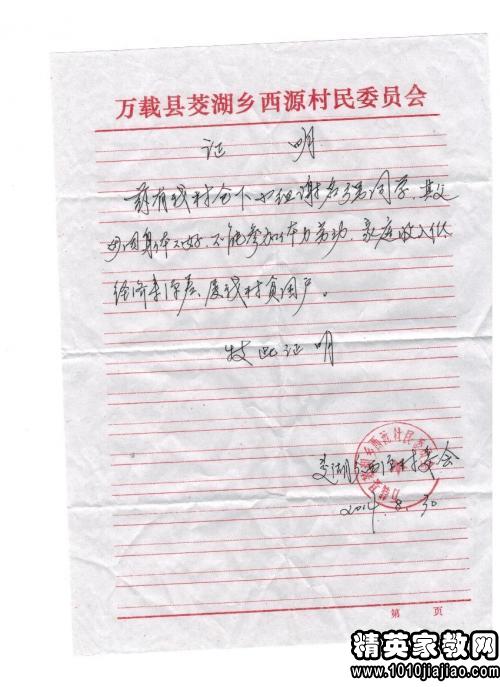 万载县茭湖乡西源村民委员会
证 明
兹有我村合下小组谢名同学,其父
母因身体不好,不能参加体力劳动,家庭收入低
经济来源差,属我村贫困户。
特此证明
茭湖乡西源村委会
2014.8.30
第 页
精英家教网
www.1010jiajiao.com